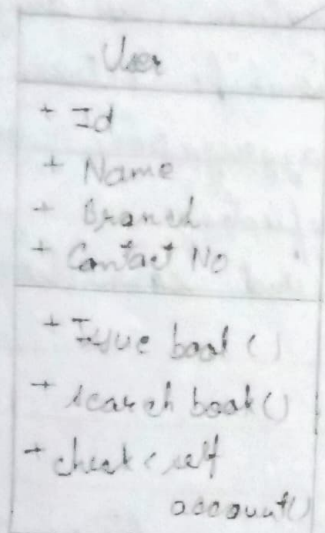 User
+ Id
+ Name
+ Branch
+ Contact No
+ Issue book ()
+ search book ()
+ check self
account()